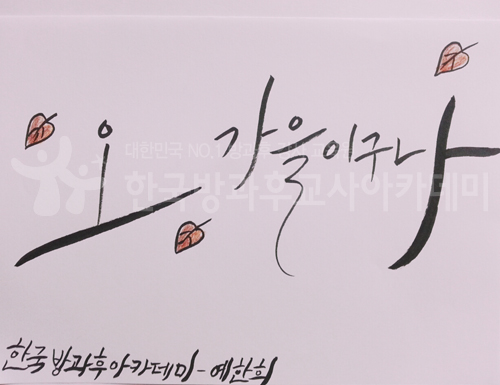 오 가을이구나
대한민국 NO.1 방과후
한국방과후교사아카데미
한국방과후아카데미-예한희